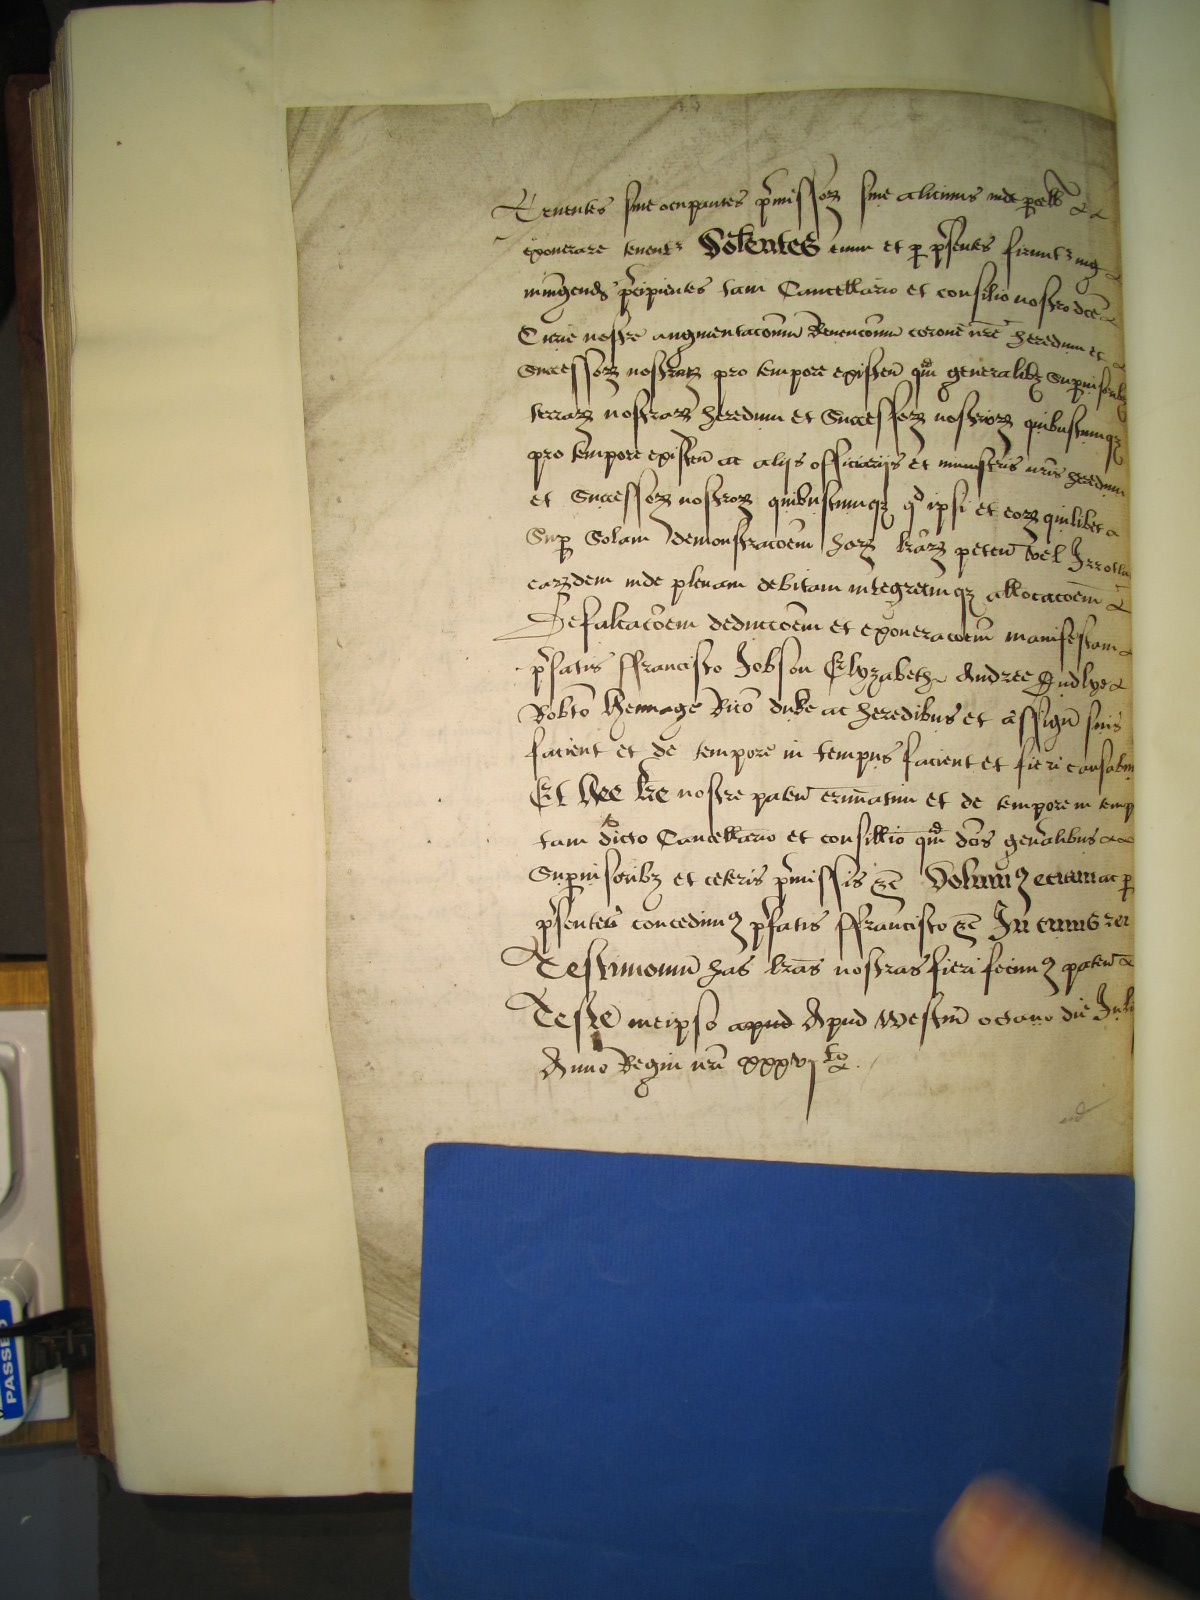 Tenentes sive ocupantes p̄missoꝝ sive alicuius inde p̱cell
exonerare tenentʳ Volentes enim et ꝑ p̄sentes firmitʳ iniu
niungend p̄cipientes tam Cancellario et consilio nostro dc̄e
Curie nostre augmentac̄onum Revenc̄onum corone nr̄e heredum et
Successoꝝ nostroꝝ pro tempore existen̄ qm̄ generalibꝫ Supvisoribꝫ
terraꝝ nostraꝝ heredum et Successoꝝ nostroꝝ quibuscumqꝫ
pro tempore existen̄ ac alijs officiarijs et ministris nr̄is heredum
et Successoꝝ nostroꝝ quibuscumqꝫ qd ipsi et eoꝝ quilibet
Suꝑ Solam demonstrac̄oem haꝝ lr̄aꝝ paten̄ vel Irrotla
earꝝdem inde plenam debitam integramqꝫ allocac̄oem
Defalcac̄oem deducc̄oem et exonerac̄oem manifestam
p̄fatis ffrancisco Jobson Elyzabeth Andree Dudlye
Robto Hennage Ric̄o duke ac heredibus et assign̄ suis
facient et de tempore in tempus facient et fieri causabu
Et Hee lr̄e nostre paten̄ erunt annuatim et de tempore in temp
tam dicto Cancellario et consillio qm̄ dc̄is gen̄alibus
Supvisoribꝫ et ceteris p̄missis &c̄ Volumꝰ eciam ac ꝑ
p̄sentes concedimꝰ p̄fatis ffrancisco &c̄ In cuius rei
Testimoniū has lr̄as nostras fieri fecimꝰ paten̄
Teste meipso apud Apud Westm̄ octavo die Juli
Anno Regni nr̄i xxxvjto
PASSED